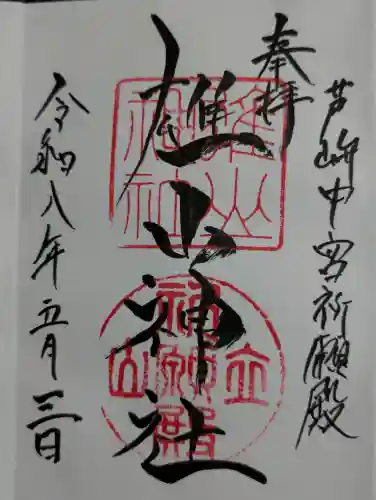 奉拝
芦峅中宮祈願殿
雄山神社
令和八年五月三日
雄山神社
立山祈願殿